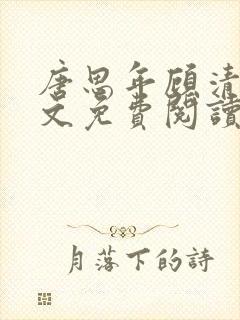 唐思年顧清
文免費閱讀
月落下的詩